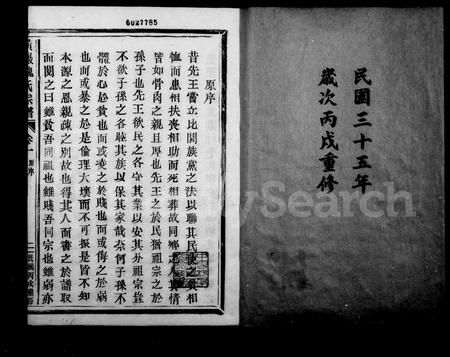 6027785
民國三十五年
歲次丙戌重修
原序
昔先王嘗立比閭族黨之法以聯其民使之喪相
恤而患相扶喪相助而死相葬故同鄉之人其情
皆如骨肉之親且厚也先王之於民猶祖宗之於
孫子也先王欲民之各守其業以安其外祖宗豈
不欲子孫之各睦其族以保其家哉奈何子孫不
體於心於貧也而或凌之於賤也而或侮之於弱
也而或暴之於是倫理大壞而不可振是皆不知
本源之恩親疎之別故也得其人而書之於譜取
而閱之曰雖貧吾同祖也雖賤吾同宗也雖弱亦
氏宗譜
卷一
原序
二
MySearch